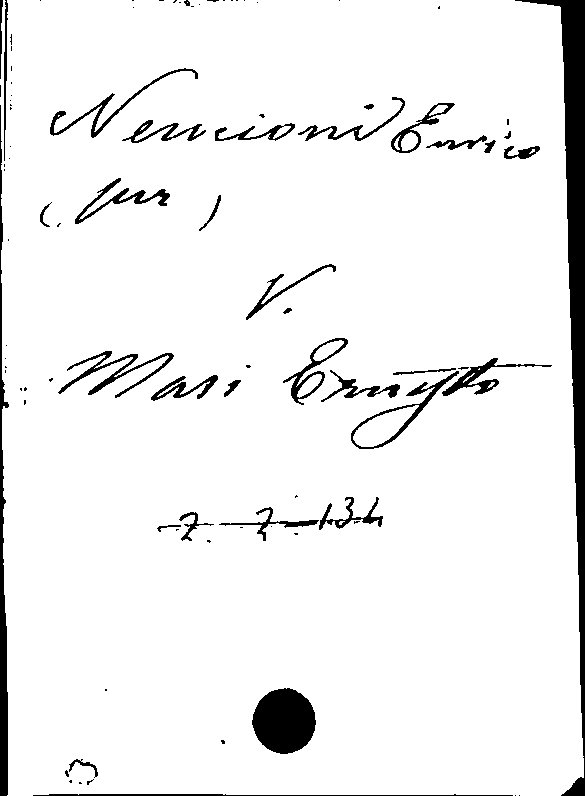 Nencioni Enrico
(per)
V.
Masi Ernesto
2. 2-134